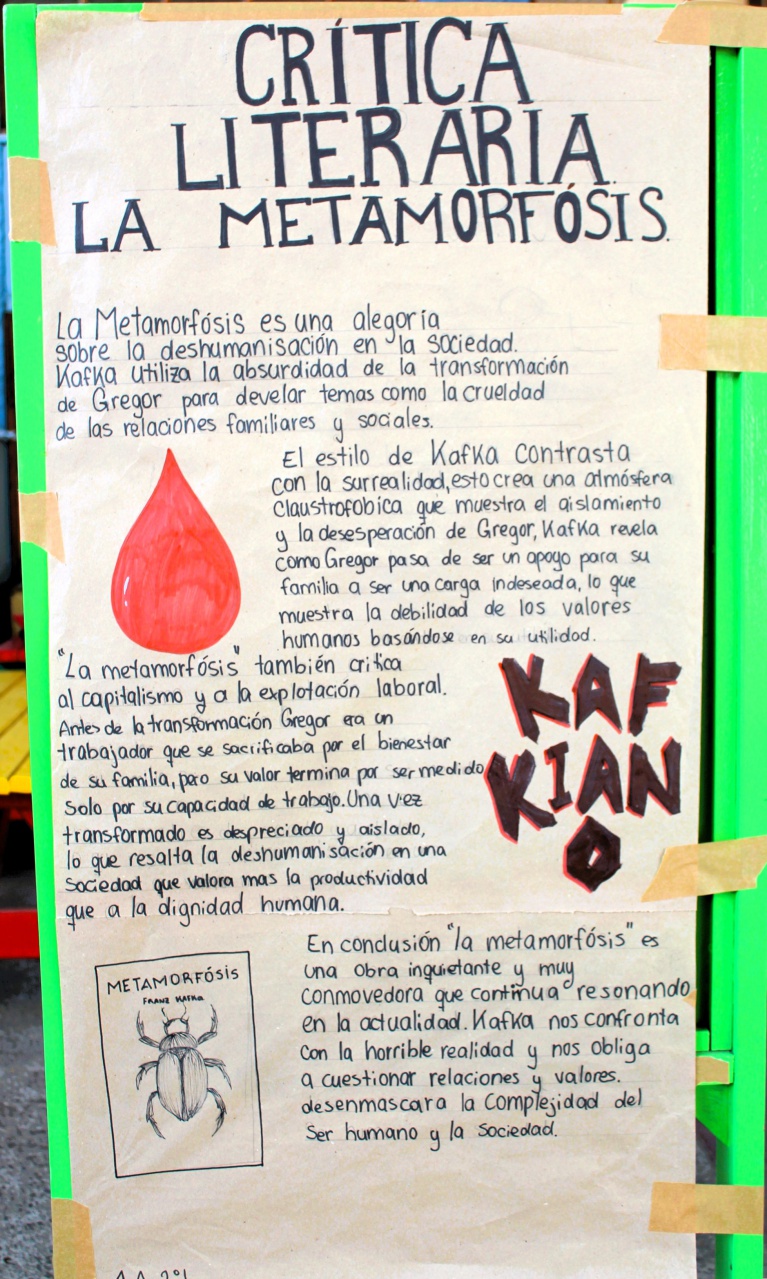 CRÍTICA
LITERARIA
LA METAMORFÓSIS.
La Metamorfósis es una alegoría
sobre la deshumanisación en la sociedad.
Kafka utiliza la absurdidad de la transformación
de Gregor para develar temas como la crueldad
de las relaciones familiares y sociales.
El estilo de Kafka contrasta
con la surrealidad, esto crea una atmósfera
claustrofobica que muestra el aislamiento
y la desesperación de Gregor, Kafka revela
como Gregor pasa de ser un apoyo para su
familia a ser una carga indeseada, lo que
muestra la debilidad de los valores
humanos basándose en su utilidad.
"La metamorfósis" también critica
al capitalismo y a la explotación laboral.
Antes de la transformación Gregor era un
trabajador que se sacrificaba por el bienestar
de su familia, pero su valor termina por ser medido
solo por su capacidad de trabajo. Una vez
transformado es despreciado y aislado,
lo que resalta la deshumanisación en una
sociedad que valora mas la productividad
que a la dignidad humana.
KAF
KIAN
O
METAMORFÓSIS
FRANZ KAFKA
En conclusión "la metamorfósis" es
una obra inquietante y muy
conmovedora que continua resonando
en la actualidad. Kafka nos confronta
con la horrible realidad y nos obliga
a cuestionar relaciones y valores.
desenmascara la complejidad del
ser humano y la sociedad.